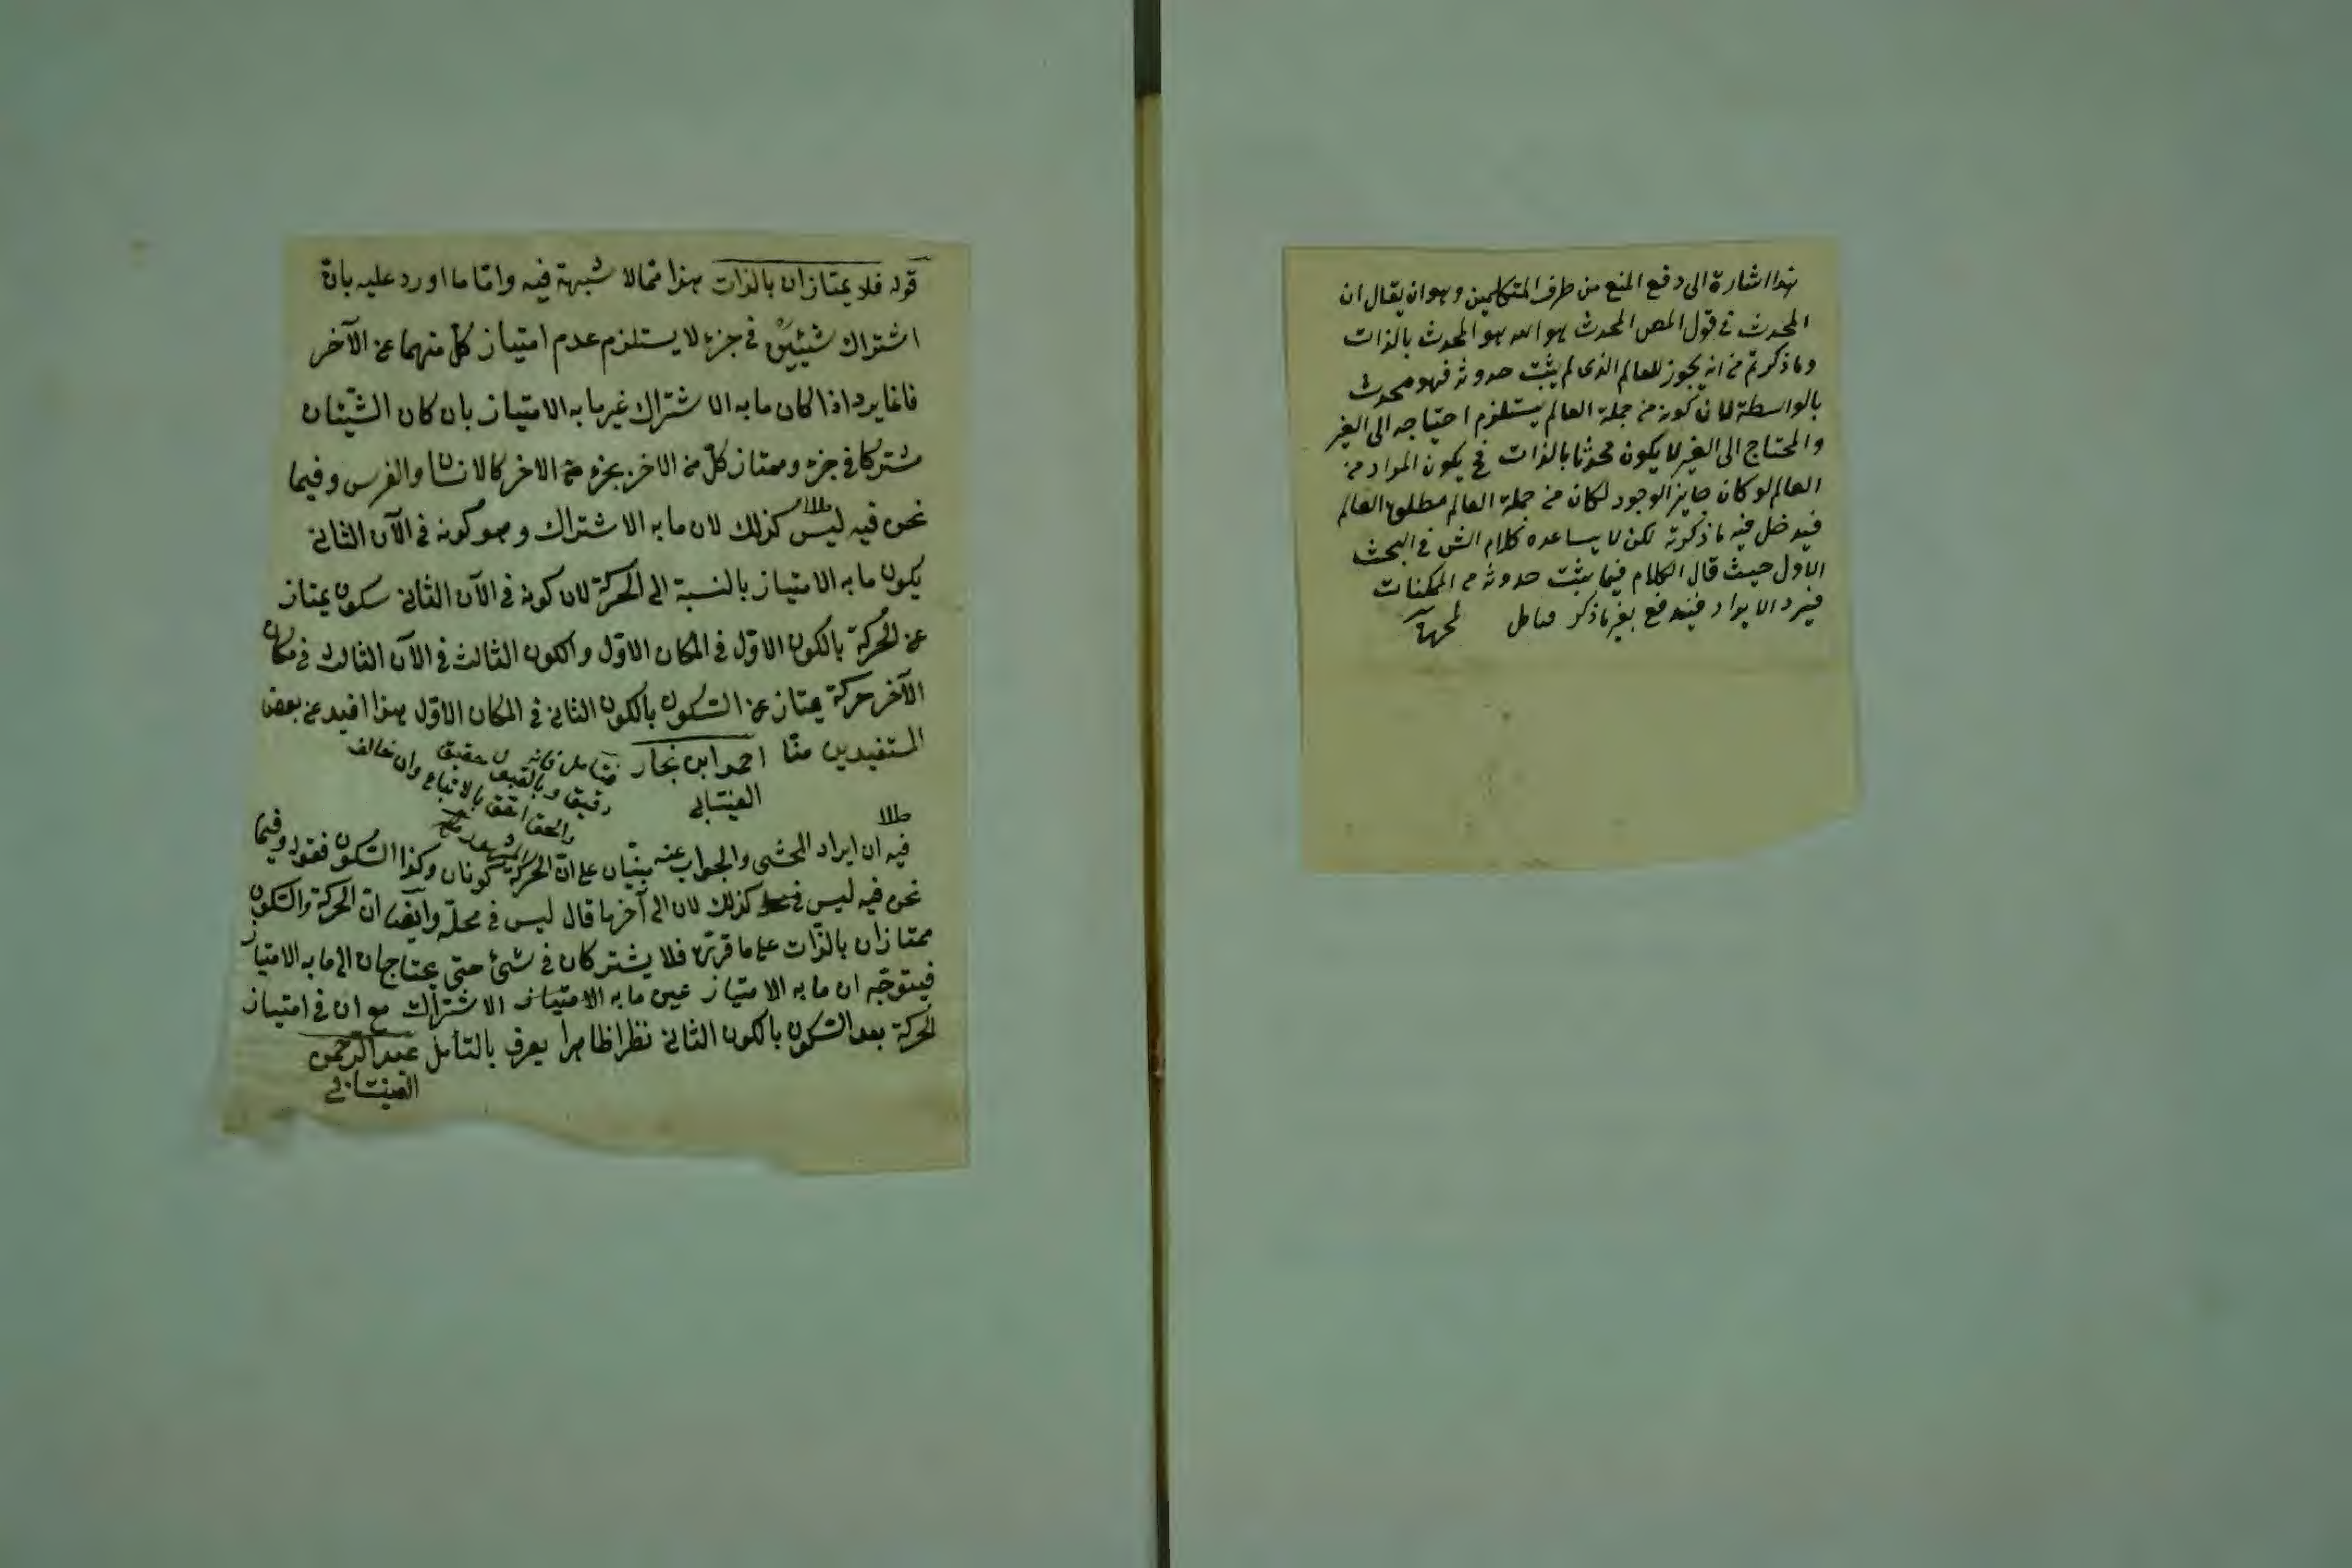 هذا اشارة الى دفع المنع من طرف المتكلمين وهو ان يقال ان
المحدث في قول المص المحدث هو الله هو المحدث بالذات
وما ذكرتم من انه يجوز للعالم الذى لم يثبت حدوثه فهو محدث
بالواسطة لان كونه من جملة العالم يستلزم احتياجه الى الغير
والمحتاج الى الغير لا يكون محدثا بالذات فح يكون المراد من
العالم لو كان جايز الوجود لكان من جملة العالم مطلق العالم
فيدخل فيه ما ذكرته لكن لا يساعده كلام الش في البحث
الاول حيث قال الكلام فيما يثبت حدوثه من الممكنات
فيرد الايراد فيندفع بغير ما ذكر فتأمل
قوله فلا يمتازان بالذات هذا مما لا شبهة فيه واما ما اورد عليه بان
اشتراك شيئين في جزء لا يستلزم عدم امتياز كل منهما عن الآخر
فانما يرد اذا كان ما به الاشتراك غير ما به الامتياز بان كان الشيئان
مشتركا في جزء وممتاز كل من الاخر بجزء عن الاخر كالانسان والفرس وفيما
نحن فيه ليس كذلك لان ما به الاشتراك وهو كونه في الآن الثاني
يكون ما به الامتياز بالنسبة الى الحركة لان كونه في الآن الثاني سكون يمتاز
عن الحركة بالكون الاول في المكان الاول والكون الثالث في الآن الثالث في مكان
الآخر حركة يمتاز عن السكون بالكون الثاني في المكان الاول هذا افيد عن بعض
المستفيدين منا احمد ابن نجار
العينتابي
فتأمل فانه حقيق
دقيق وبالقبول
والحق احق بالاتباع وان خالف
المشهور
فيه ان ايراد المحشى والجواب عنه مبنيان على ان الحركة كونان وكذا السكون فقوله وفيما
نحن فيه ليس كذلك لان الى آخر ما قال ليس في محله وايضا ان الحركة والسكون
ممتازان بالذات على ما قرره فلا يشتركان في شئ حتى يحتاجان الى ما به الامتياز
فيتوجه ان ما به الامتياز عين ما به الامتياز الاشتراك مع ان في امتياز
الحركة بعد السكون بالكون الثاني نظرا ظاهرا يعرف بالتأمل عبد الرحمن
العينتابي